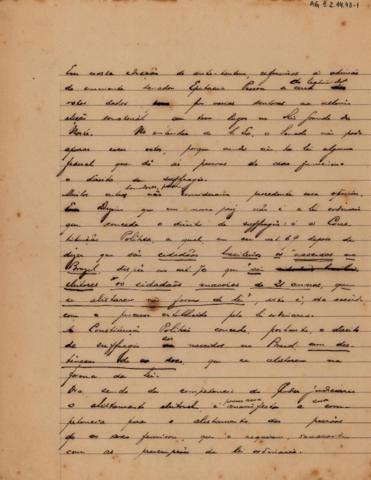 AG
Em nossa edição de ante-hontem, referimos a opinião
do eminente senador Epitacio Pessoa a cerca da legitimidade dos
votos dados por varias senhoras na ultima
eleição senatorial que teve logar no Rio Grande do
Norte. No entender de S. Ex., o Senado não pode
apurar esses votos, porque não existe lei alguma
federal que dê ás pessoas do sexo feminino
o direito de suffragio.
Muitos não consideram procedente essa opinião.
que em nosso paiz não é a lei ordinaria
que concede o direito de suffragio; é a Cons-
tituição Politica, a qual, em seu art. 69 depois de
dizer que são cidadãos brasileiros os nascidos no
Brazil, dispõe no art. 70 que "são
eleitores os cidadãos maiores de 21 annos, que
se alistarem na forma da lei", isto é, de accordo
com o processo estabelecido pela lei ordinaria.
A Constituição Politica concede, portanto, o direito
de suffragio aos nascidos no Brasil sem dis-
tincção de sexo, que se alistarem na
forma da lei.
Ora, sendo da competencia do Poder Judiciario
o alistamento eleitoral, é manifesta a sua com-
petencia para o alistamento das pessoas
do sexo feminino, que o requeiram,
com as prescripções da lei ordinaria.